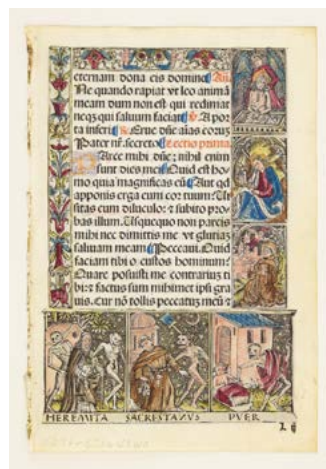 eternam dona eis domine Añ
Ne quando rapiat vt leo animā
meam dum non est qui redimat
neqz qui saluum faciat ℣ A por
ta inferi ℟ Erue dñe aĩas eorum
Pater nr̃. secreto Lectio prima
Parce mihi dñe: nihil enim
sunt dies mei Quid est ho
mo quia magnificas eū Aut qd
apponis erga eum cor tuum: Ui
sitas eum diluculo: z subito pro
bas illum. Usquequo non parcis
mihi nec dimittis me vt glutiaz
saliuam meam Peccaui. Quid
faciam tibi o custos hominum:
Quare posuisti me contrarium ti
bi: z factus sum mihimet ipsi gra
uis. Cur nō tollis peccatum meū:
HEREMITA SACRESTANVS PVER